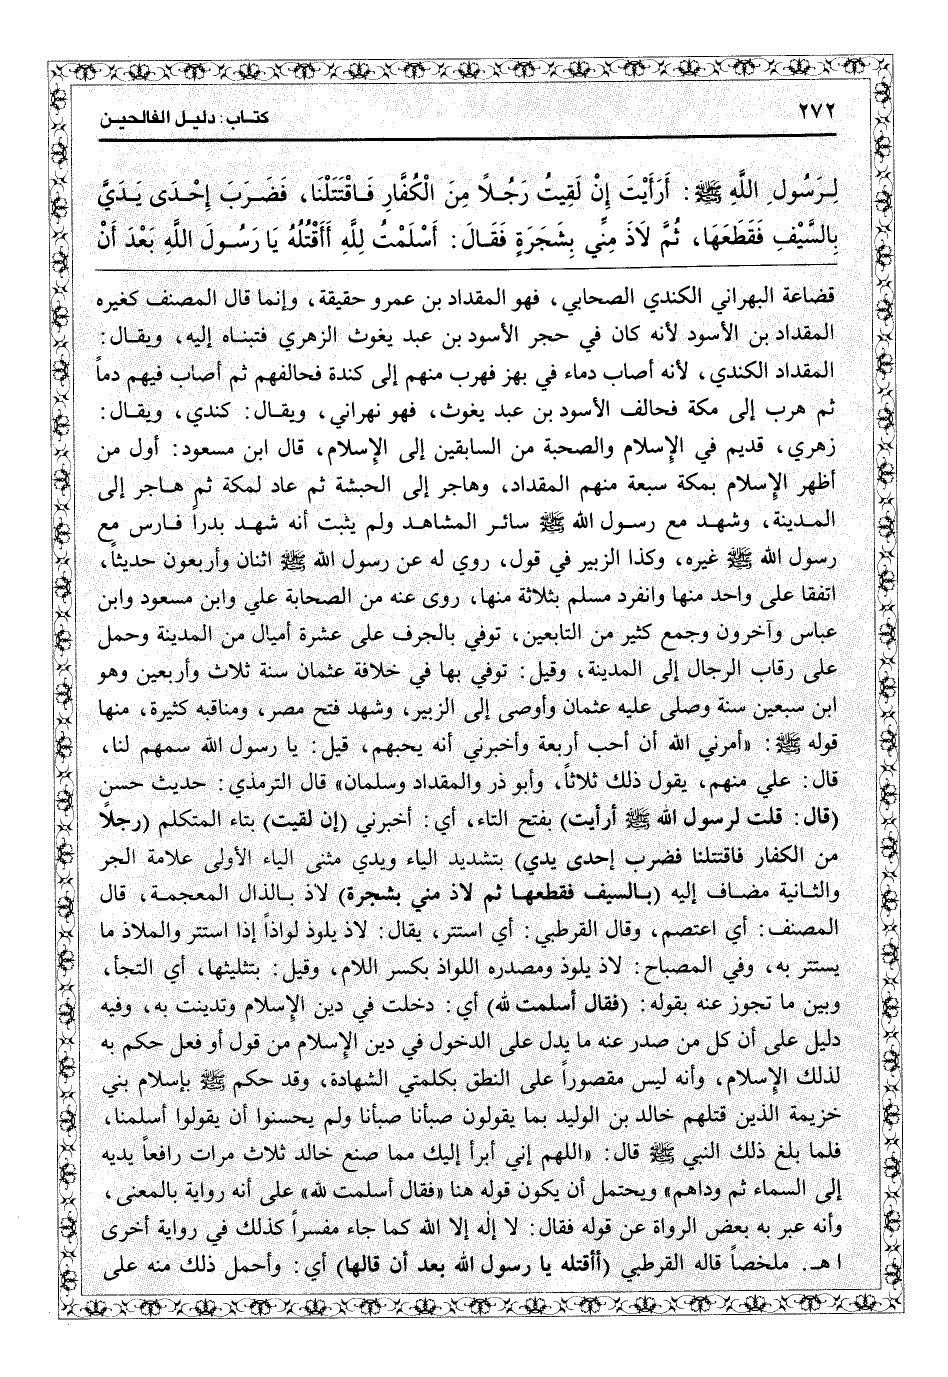 ٢٧٢
كتاب: دليل الفالحين
لِرَسُولِ اللَّهِ ﷺ: أَرَأَيْتَ إِنْ لَقِيتُ رَجُلاً مِنَ الْكُفَّارِ فَاقْتَتَلْنَا، فَضَرَبَ إِحْدَى يَدَيَّ
بِالسَّيْفِ فَقَطَعَهَا، ثُمَّ لاَذَ مِنِّي بِشَجَرَةٍ فَقَالَ: أَسْلَمْتُ لِلَّهِ أَأَقْتُلُهُ يَا رَسُولَ اللَّهِ بَعْدَ أَنْ
قضاعة البهراني الكندي الصحابي، فهو المقداد بن عمرو حقيقة، وإنما قال المصنف كغيره
المقداد بن الأسود لأنه كان في حجر الأسود بن عبد يغوث الزهري فتبناه إليه، ويقال:
المقداد الكندي، لأنه أصاب دماء في بهز فهرب منهم إلى كندة فحالفهم ثم أصاب فيهم دماً
ثم هرب إلى مكة فحالف الأسود بن عبد يغوث، فهو نهراني، ويقال: كندي، ويقال:
زهري، قديم في الإسلام والصحبة من السابقين إلى الإسلام، قال ابن مسعود: أول من
أظهر الإسلام بمكة سبعة منهم المقداد، وهاجر إلى الحبشة ثم عاد لمكة ثم هاجر إلى
المدينة، وشهد مع رسول الله ﷺ سائر المشاهد ولم يثبت أنه شهد بدراً فارس مع
رسول الله ﷺ غيره، وكذا الزبير في قول، روي له عن رسول الله ﷺ اثنان وأربعون حديثاً،
اتفقا على واحد منها وانفرد مسلم بثلاثة منها، روى عنه من الصحابة علي وابن مسعود وابن
عباس وآخرون وجمع كثير من التابعين، توفي بالجرف على عشرة أميال من المدينة وحمل
على رقاب الرجال إلى المدينة، وقيل: توفي بها في خلافة عثمان سنة ثلاث وأربعين وهو
ابن سبعين سنة وصلى عليه عثمان وأوصى إلى الزبير، وشهد فتح مصر، ومناقبه كثيرة، منها
قوله ﷺ: «أمرني الله أن أحب أربعة وأخبرني أنه يحبهم، قيل: يا رسول الله سمهم لنا،
قال: علي منهم، يقول ذلك ثلاثاً، وأبو ذر والمقداد وسلمان» قال الترمذي: حديث حسن
(قال: قلت لرسول الله ﷺ أرأيت) بفتح التاء، أي: أخبرني (إن لقيت) بتاء المتكلم (رجلاً
من الكفار فاقتتلنا فضرب إحدى يدي) بتشديد الياء ويدي مثنى الياء الأولى علامة الجر
والثانية مضاف إليه (بالسيف فقطعها ثم لاذ مني بشجرة) لاذ بالذال المعجمة، قال
المصنف: أي اعتصم، وقال القرطبي: أي استتر، يقال: لاذ يلوذ لواذاً إذا استتر والملاذ ما
يستتر به، وفي المصباح: لاذ يلوذ ومصدره اللواذ بكسر اللام، وقيل: بتثليثها، أي التجأ،
وبين ما تجوز عنه بقوله: (فقال أسلمت لله) أي: دخلت في دين الإسلام وتدينت به، وفيه
دليل على أن كل من صدر عنه ما يدل على الدخول في دين الإسلام من قول أو فعل حكم به
لذلك الإسلام، وأنه ليس مقصوراً على النطق بكلمتي الشهادة، وقد حكم ﷺ بإسلام بني
خزيمة الذين قتلهم خالد بن الوليد بما يقولون صبأنا صبأنا ولم يحسنوا أن يقولوا أسلمنا،
فلما بلغ ذلك النبي ﷺ قال: «اللهم إني أبرأ إليك مما صنع خالد ثلاث مرات رافعاً يديه
إلى السماء ثم وداهم» ويحتمل أن يكون قوله هنا «فقال أسلمت لله» على أنه رواية بالمعنى،
وأنه عبر به بعض الرواة عن قوله فقال: لا إله إلا الله كما جاء مفسراً كذلك في رواية أخرى
ا هـ. ملخصاً قاله القرطبي (أأقتله يا رسول الله بعد أن قالها) أي: وأحمل ذلك منه على